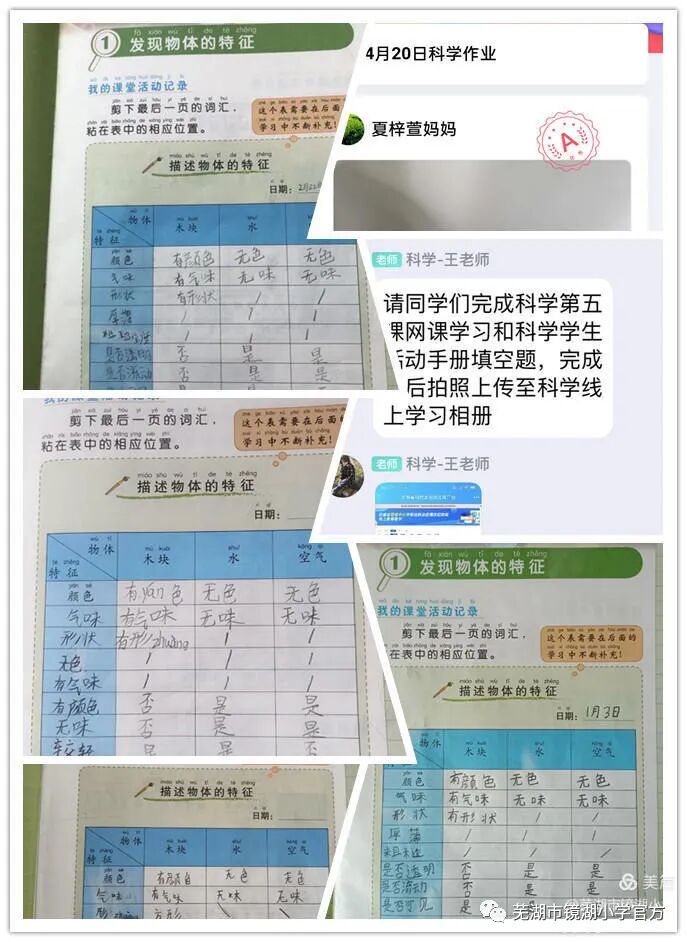 1 发现物体的特征
我的课堂活动记录
剪下最后一页的词汇，
粘在表中的相应位置。
这个表需要在后面的
学习中不断补充！
描述物体的特征
日期：2月22日
物体 木块 水
特征
颜色 有颜色 无色 无色
气味 有气味 无味 无味
形状 有形状 / /
厚薄 / / /
/ / /
是否透明 否 是 是
是否流动 否 是 是
4月20日科学作业
夏梓萱妈妈
A
老师 科学-王老师
请同学们完成科学第五
课网课学习和科学学生
活动手册填空题，完成
后拍照上传至科学线
上学习相册
老师 科学-王老师
我的课堂活动记录
剪下最后一页的词汇，
粘在表中的相应位置。
这个表需要在后面的
学习中不断补充！
描述物体的特征
日期：
物体 木块 水 空气
特征
颜色 有yan色 无色 无色
气味 有气味 无味 无味
形状 有形zhuàng / /
无色 / / /
有气味 / / /
有颜色 否 是 是
无味 否 是 是
较轻 是 是 否
1 发现物体的特征
我的课堂活动记录
剪下最后一页的词汇，
粘在表中的相应位置。
这个表需要在后面的
学习中不断补充！
描述物体的特征
日期：1月3日
物体 木块 水 空气
特征
颜色 有颜色 无色 无色
气味 有气味 无味 无味
形状 有形状 / /
厚薄 / / /
/ / /
是否透明 否 是 是
是否流动 否 是 是
是否可见 是 是
描述物体的特征
日期：
物体 木块 水 空气
特征
颜色 有颜色 无色 无色
气味 有气味 无味 无味
方形 \ \
美篇
芜湖市镜湖小学官方